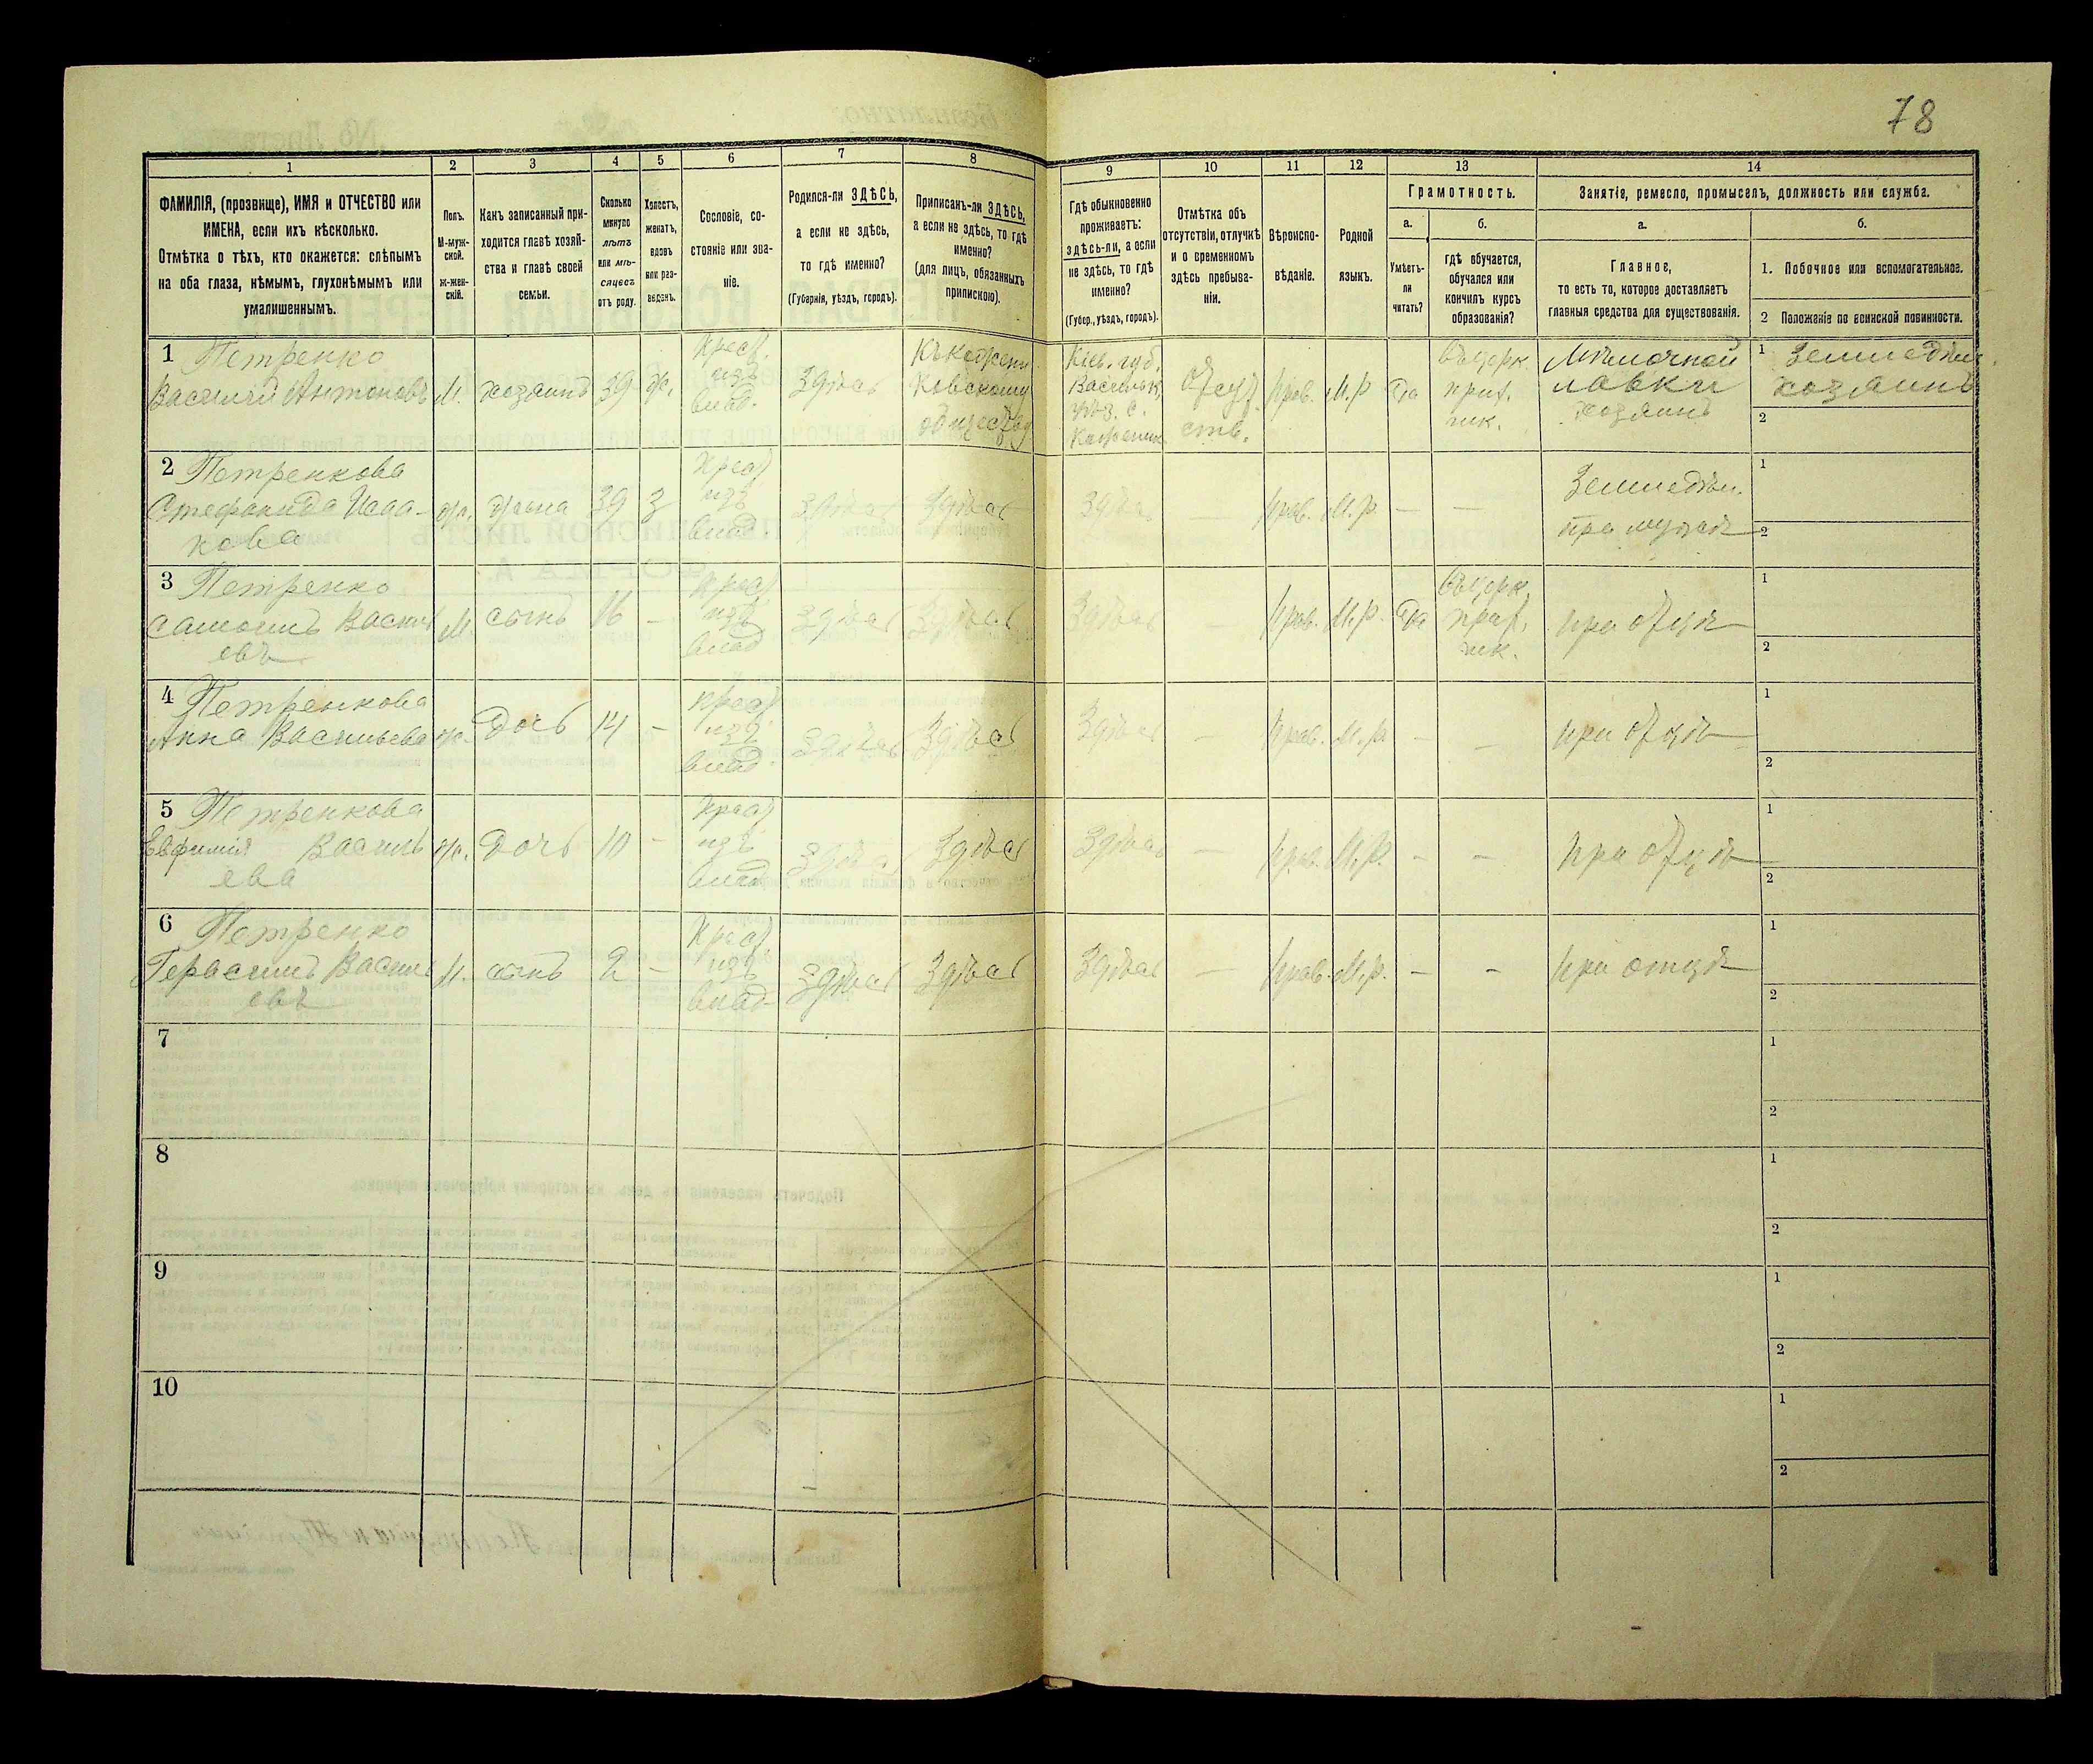 78
1
2
3
4
5
6
7
8
9
10
11
12
13
14
ФАМИЛІЯ, (прозвище), ИМЯ и ОТЧЕСТВО или
ИМЕНА, если ихъ нѣсколько.
Отмѣтка о тѣхъ, кто окажется: слѣпымъ
на оба глаза, нѣмымъ, глухонѣмымъ или
умалишеннымъ.
Полъ.
М-муж-
ской.
ж-жен-
скій.
Какъ записанный при-
ходится главѣ хозяй-
ства и главѣ своей
семьи.
Сколько
минуло
лѣтъ
или мѣ-
сяцевъ
отъ роду.
Холостъ,
женатъ,
вдовъ
или раз-
веденъ.
Сословіе, со-
стояніе или зва-
ніе.
Родился-ли ЗДѢСЬ,
а если не здѣсь,
то гдѣ именно?
(Губернія, уѣздъ, городъ).
Приписанъ-ли ЗДѢСЬ,
а если не здѣсь, то гдѣ
именно?
(для лицъ, обязанныхъ
припискою).
Гдѣ обыкновенно
проживаетъ:
здѣсь-ли, а если
не здѣсь, то гдѣ
именно?
(Губер., уѣздъ, городъ).
Отмѣтка объ
отсутствіи, отлучкѣ
и о временномъ
здѣсь пребыва-
ніи.
Вѣроиспо-
вѣданіе.
Родной
языкъ.
Грамотность.
а.
Умѣетъ-
ли
читать?
б.
гдѣ обучается,
обучался или
кончилъ курсъ
образованія?
Занятіе, ремесло, промыселъ, должность или служба.
а.
Главное,
то есть то, которое доставляетъ
главныя средства для существованія.
б.
1. Побочное или вспомогательное.
2 Положеніе по воинской повинности.
1 Петренко
Василій Антоновъ
М.
хозяинъ
39
ж.
Крест.
изъ
влад.
Здѣсь
Къ
ковскому
обществу
Кіев. губ.
Васильк.
уѣз. с.
Отсут
ств.
Прав.
М.р
да
въ церк.
прих.
шк.
Мѣлочной
лавки
хозяинъ
1 Земледѣл.
хозяинъ
2
2 Петренкова
Стефанида Исаа-
кова
ж.
жена
39
З
Крест
изъ
влад.
Здѣсь
Здѣсь
Здѣсь
Прав.
М.р.
—
—
Земледѣл.
при мужѣ
1
2
3 Петренко
Самоилъ Василь
евъ
М
сынъ
16
—
Крест
изъ
влад
Здѣсь
Здѣсь
Здѣсь
—
Прав.
М.р.
да
въ церк.
прих.
шк.
при отцѣ
1
2
4 Петренкова
Анна Васильева
ж.
дочь
14
—
Крест
изъ
влад.
Здѣсь
Здѣсь
Здѣсь
—
Прав.
М.р.
—
—
при отцѣ
1
2
5 Петренкова
Евфимія Василь
ева
ж.
дочь
10
—
Крест
изъ
влад
Здѣсь
Здѣсь
Здѣсь
—
Прав.
М.р.
—
—
при отцѣ
1
2
6 Петренко
Герасимъ Василь
евъ
М.
сынъ
2
—
Крест
изъ
влад
Здѣсь
Здѣсь
Здѣсь
—
Прав.
М.р.
—
—
при отцѣ
1
2
7
1
2
8
1
2
9
1
2
10
1
2